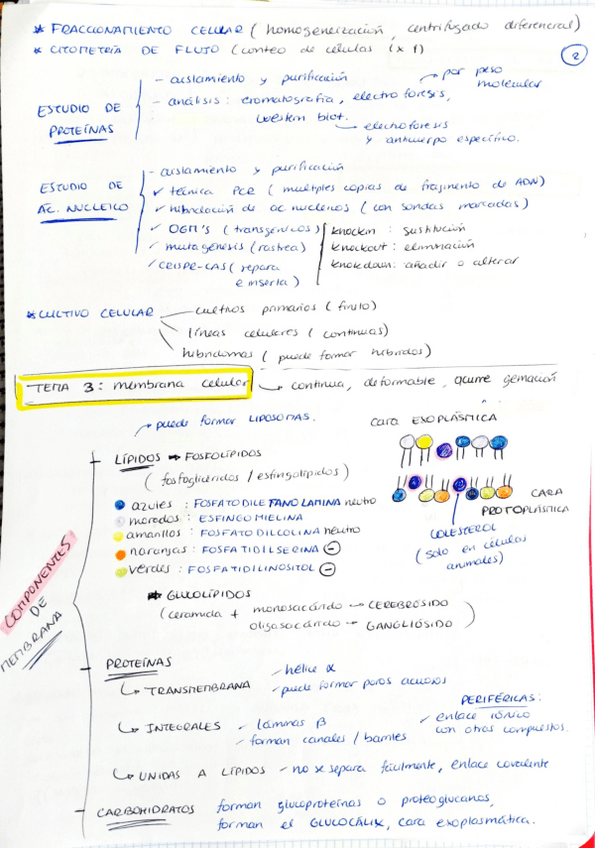 * FRACCIONAMIENTO CELULAR (homogeneización, centrifugado diferencial)
* CITOMETRÍA DE FLUJO (conteo de células (x 1)
2
ESTUDIO DE PROTEÍNAS
- aislamiento y purificación
→ por peso molecular
- análisis: cromatografía, electroforesis,
Western blot.
→ electroforesis
y anticuerpo específico.
ESTUDIO DE AC. NUCLEICO
- aislamiento y purificación
✓ técnica PCR (multiples copias de fragmento de ADN)
✓ hibridación de ac nucleicos (con sondas marcadas)
✓ OGM'S (transgénicos)
✓ mutagénesis (rastrea)
✓ CRISPR-CAS (repara
e inserta)
knockin: sustitución
knockout: eliminación
knockdown: añadir o alterar
* CULTIVO CELULAR
cultivos primarios (finito)
líneas celulares (continuas)
hibridomas (puede formar híbridos)
TEMA 3: membrana celular → continua, deformable, ocurre gemación
→ puede formar LIPOSOMAS.
cara EXOPLÁSTICA
LÍPIDOS → FOSFOLÍPIDOS
(fosfoglicéridos / esfingolípidos)
azules: FOSFATODILETANOLAMINA neutro
morados: ESFINGOMIELINA
amarillos: FOSFATODILCOLINA neutro
naranjas: FOSFATIDILSERINA (-)
verdes: FOSFATIDILINOSITOL (-)
CARA
PROTOPLÁSTICA
COLESTEROL
(solo en células
animales)
→ GLUCOLÍPIDOS
(ceramida + monosacárido → CEREBRÓSIDO
oligosacárido → GANGLIÓSIDO)
COMPONENTES
DE
MEMBRANA
PROTEÍNAS
↳ TRANSMEMBRANA
- hélice α
- puede formar poros acuosos
↳ INTEGRALES
- láminas β
- forman canales / barriles
PERIFÉRICAS:
✓ enlace iónico
con otras compuestos.
↳ UNIDAS A LÍPIDOS - no se separa fácilmente, enlace covalente
CARBOHIDRATOS forman glucoproteínas o proteoglucanos,
forman el GLUCOCÁLIX, cara exoplasmática.